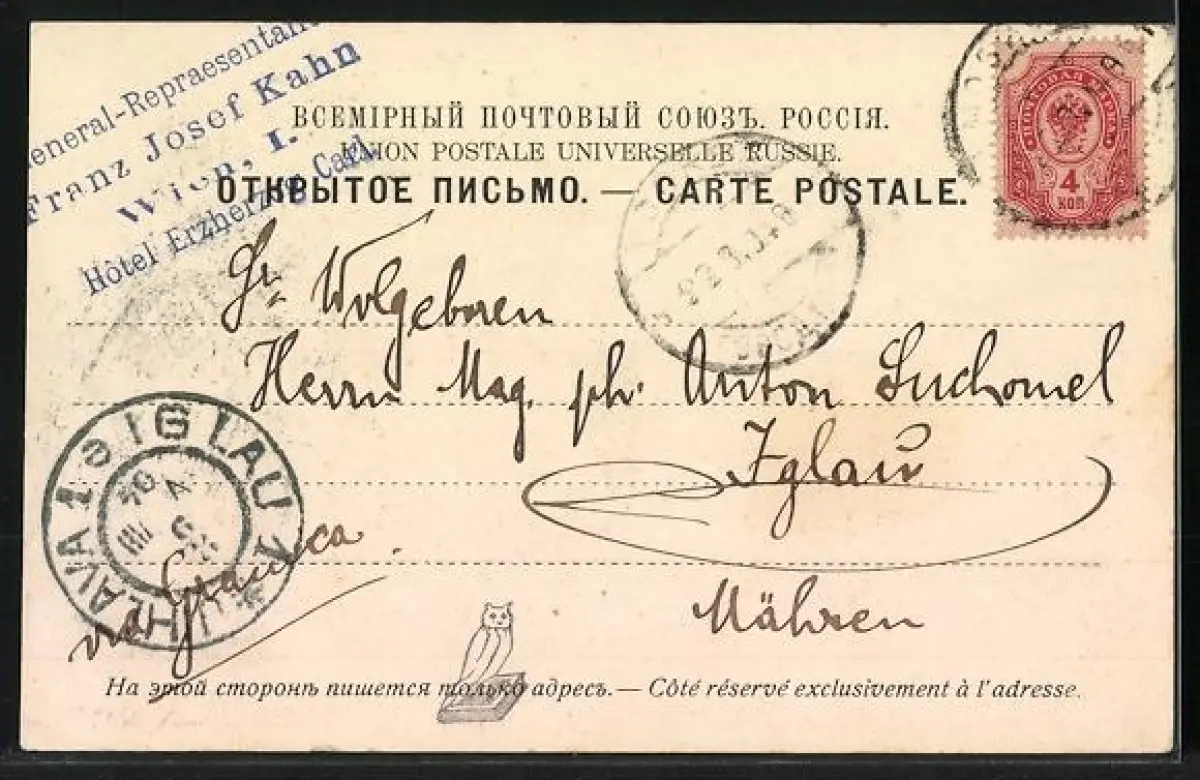 General-Repraesentant
Franz Josef Kahn
Wien, I.
Hôtel Erzherzog Carl.
ВСЕМІРНЫЙ ПОЧТОВЫЙ СОЮЗЪ. РОССІЯ.
UNION POSTALE UNIVERSELLE RUSSIE.
ОТКРЫТОЕ ПИСЬМО. — CARTE POSTALE.
ПОЧТОВАЯ МАРКА
4
КОП
Sr. Wolgeboren
Herrn Mag. ph. Anton Suchomel
Iglau
Mähren
IGLAU 1
JIHLAVA 1
via Granica
На этой сторонѣ пишется только адресъ. — Côté réservé exclusivement à l'adresse.